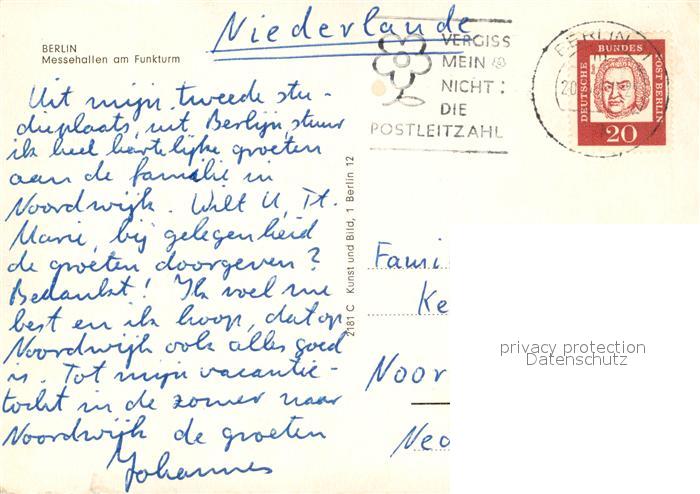 Niederlande
BERLIN
Messehallen am Funkturm
VERGISS
MEIN
NICHT:
DIE
POSTLEITZAHL
BERLIN
20
DEUTSCHE BUNDESPOST BERLIN
20
Uit mijn tweede stu-
dieplaats, uit Berlijn, stuur
ik heel hartelijke groeten
aan de familie in
Noordwijk. Wilt U, Tt.
Marie, bij gelegenheid
de groeten doorgeven?
Bedankt! Ik voel me
best en ik hoop, dat op
Noordwijk ook alles goed
is. Tot mijn vacantie-
tocht in de zomer naar
Noordwijk de groeten
Johannes
2181 C Kunst und Bild, 1 Berlin 12
Fami
Ke
Noor
Ned
privacy protection
Datenschutz